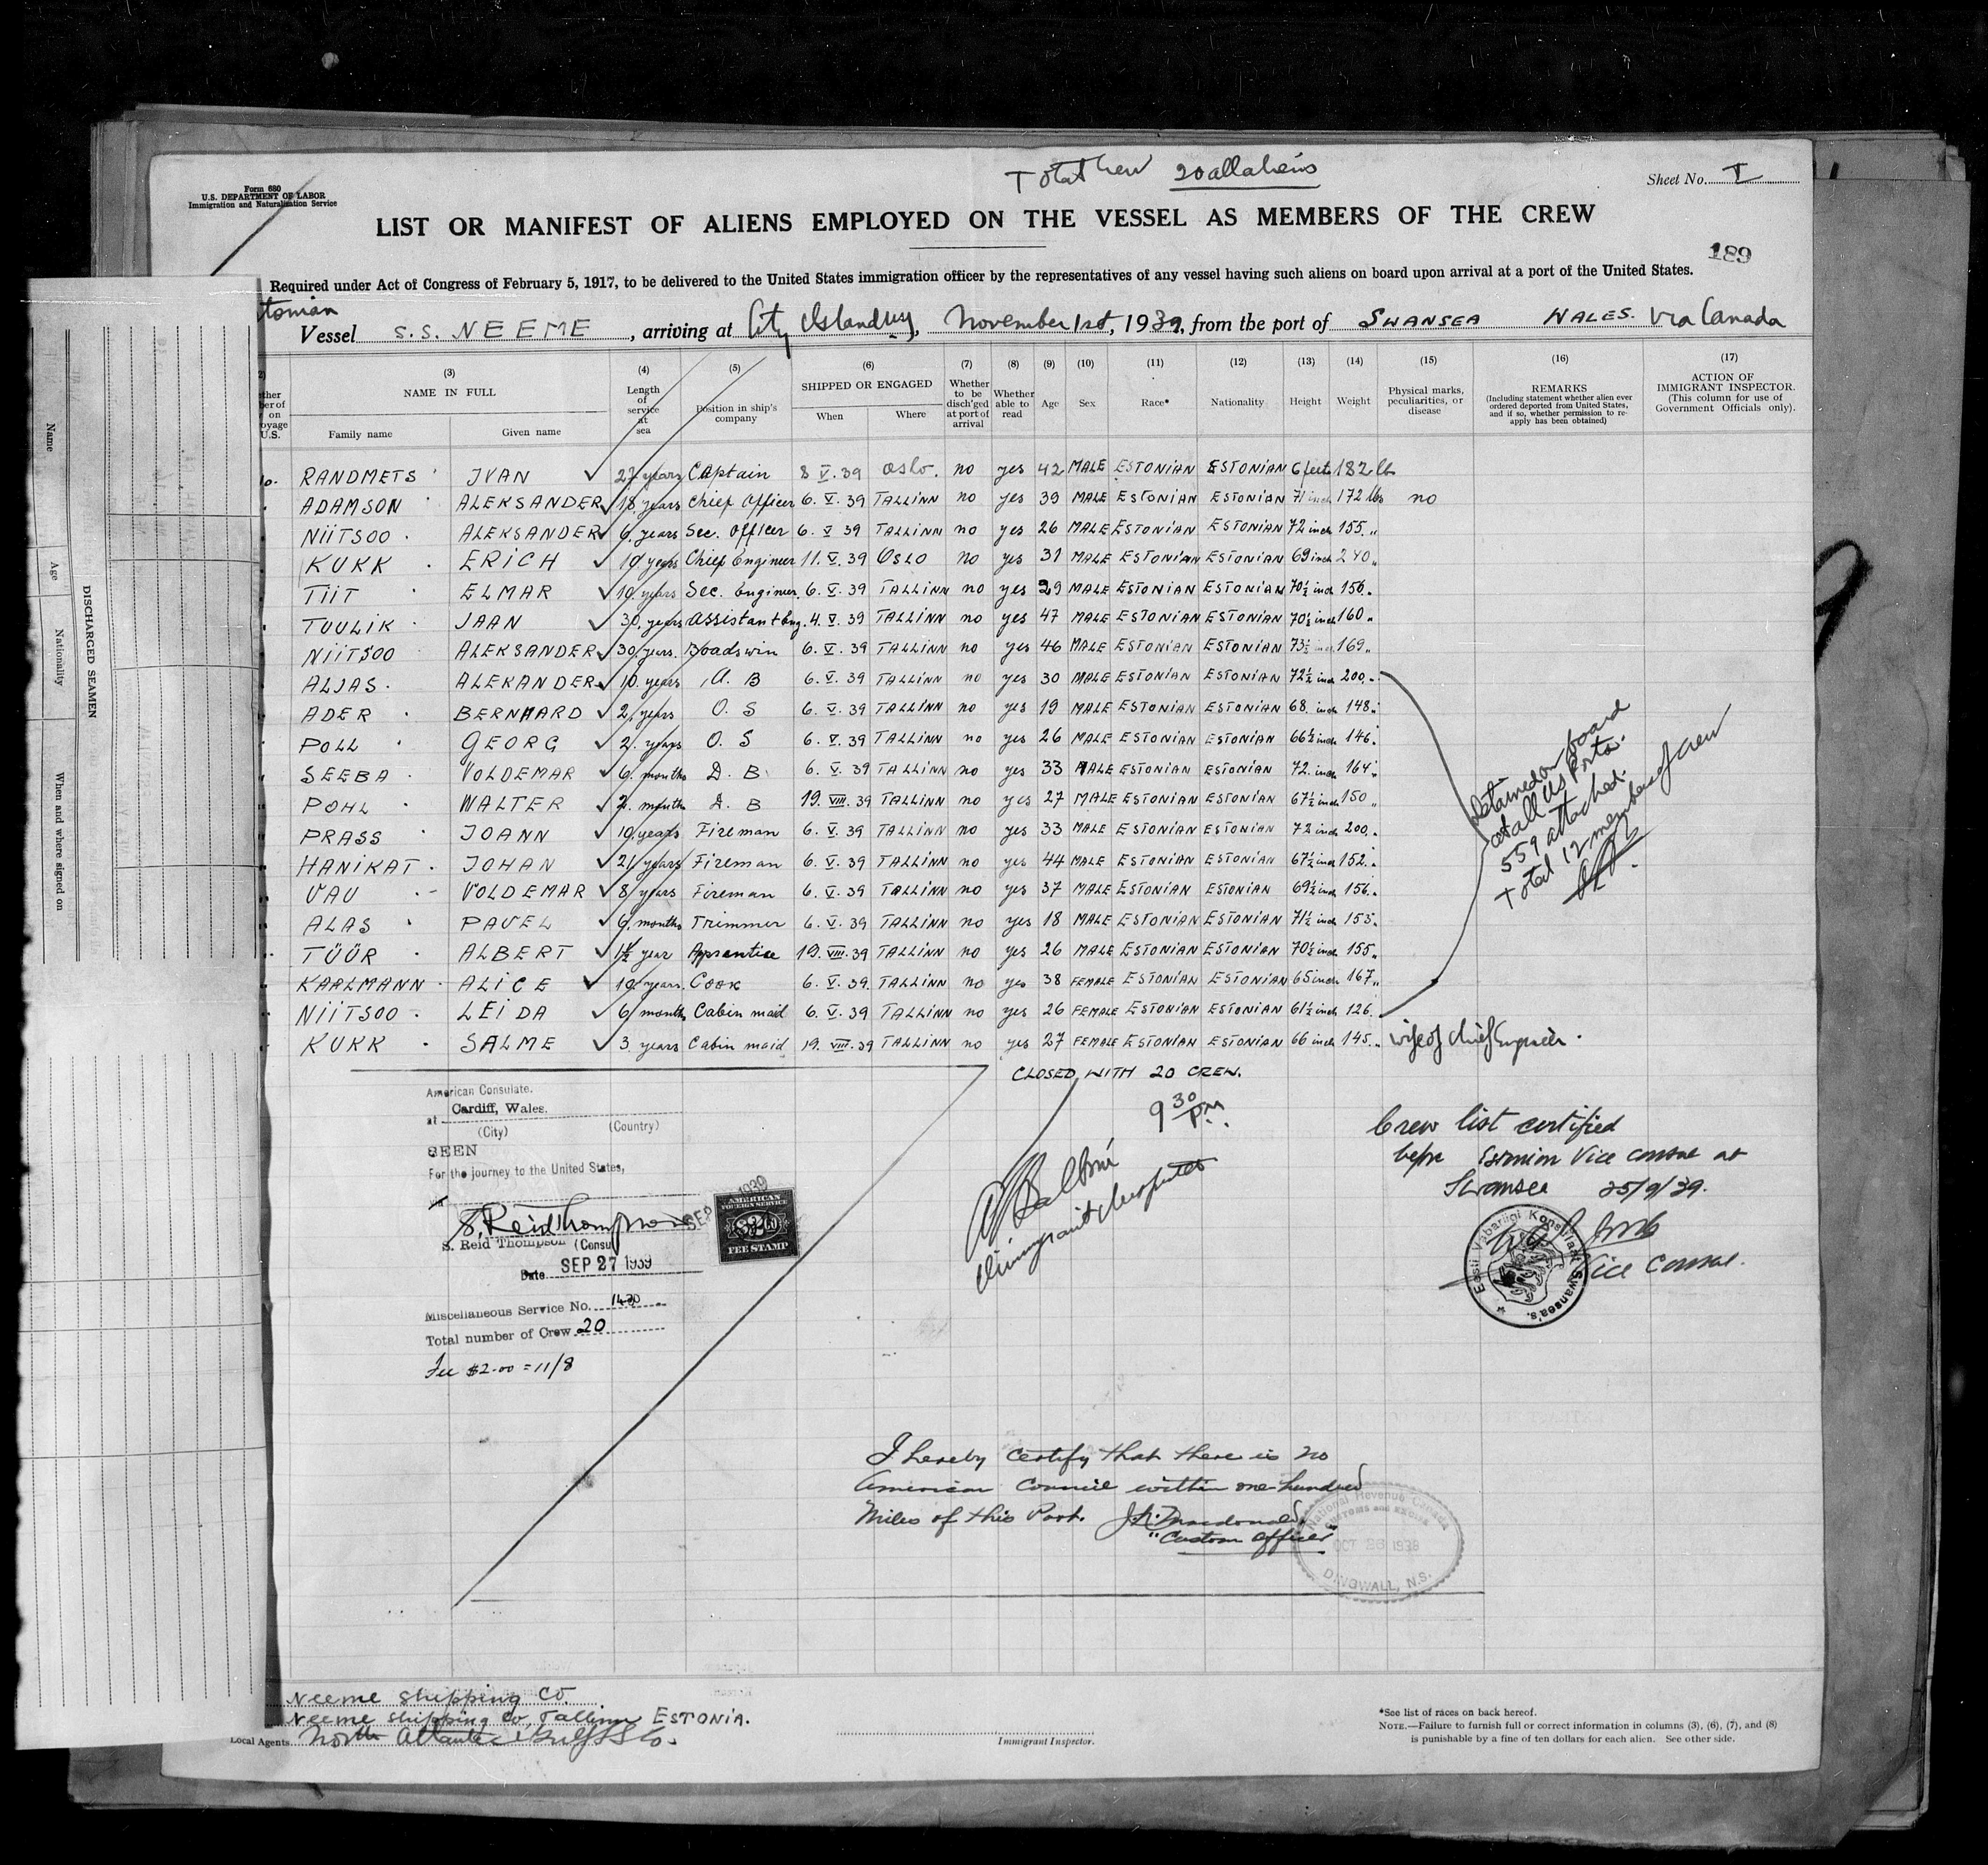 Total Crew 20 all aliens
Form 680
U.S. DEPARTMENT OF LABOR
Immigration and Naturalization Service
Sheet No. I
LIST OR MANIFEST OF ALIENS EMPLOYED ON THE VESSEL AS MEMBERS OF THE CREW
189
Required under Act of Congress of February 5, 1917, to be delivered to the United States immigration officer by the representatives of any vessel having such aliens on board upon arrival at a port of the United States.
tonian
Vessel S.S. NEEME, arriving at City Island NY, November 1st, 1939, from the port of SWANSEA WALES. Via Canada
(3) NAME IN FULL Family name Given name (4) Length of service at sea (5) Position in ship's company (6) SHIPPED OR ENGAGED When Where (7) Whether to be disch'ged at port of arrival (8) Whether able to read (9) Age (10) Sex (11) Race* (12) Nationality (13) Height (14) Weight (15) Physical marks, peculiarities, or disease (16) REMARKS (Including statement whether alien ever ordered deported from United States, and if so, whether permission to reapply has been obtained) (17) ACTION OF IMMIGRANT INSPECTOR. (This column for use of Government Officials only).
RANDMETS JVAN 27 years Captain 8 V. 39 Oslo. no yes 42 MALE ESTONIAN ESTONIAN 6 feets 182 lb
ADAMSON ALEKSANDER 18. years Chief Officer 6. V. 39 TALLINN no yes 39 MALE ESTONIAN ESTONIAN 71 inch 172 lbs no
NIITSOO ALEKSANDER 6. years Sec. Officer 6. V 39 TALLINN no yes 26 MALE ESTONIAN ESTONIAN 72 inch 155. "
KUKK ERICH 10 years Chief Engineer 11. V. 39 OSLO no yes 31 MALE ESTONIAN ESTONIAN 69 inch 240 "
TIIT ELMAR 10. years Sec. Engineer. 6. V. 39 TALLINN no yes 29 MALE ESTONIAN ESTONIAN 70½ inch 156. "
TUULIK JAAN 30. years Assistant Eng. 4. V. 39 TALLINN no yes 47 MALE ESTONIAN ESTONIAN 70½ inch 160 "
NIITSOO ALEKSANDER 30 years. Boadswin 6. V. 39 TALLINN no yes 46 MALE ESTONIAN ESTONIAN 73½ inch 169 "
ALJAS ALEKANDER 10. years A. B 6. V. 39 TALLINN no yes 30 MALE ESTONIAN ESTONIAN 72½ inch 200 "
ADER BERNHARD 2. years O. S 6. V. 39 TALLINN no yes 19 MALE ESTONIAN ESTONIAN 68. inch 148 "
POLL GEORG 2. years O. S 6. V. 39 TALLINN no yes 26 MALE ESTONIAN ESTONIAN 66½ inch 146 "
SEEBA VOLDEMAR 6. months D. B 6. V. 39 TALLINN no yes 33 MALE ESTONIAN ESTONIAN 72. inch 164 "
POHL WALTER 2. months D. B 19. VIII. 39 TALLINN no yes 27 MALE ESTONIAN ESTONIAN 67½ inch 150 "
PRASS JOANN 10 years Fireman 6. V. 39 TALLINN no yes 33 MALE ESTONIAN ESTONIAN 72 inch 200 "
HANIKAT JOHAN 21 years Fireman 6. V. 39 TALLINN no yes 44 MALE ESTONIAN ESTONIAN 67½ inch 152 "
VAU VOLDEMAR 8 years Fireman 6. V. 39 TALLINN no yes 37 MALE ESTONIAN ESTONIAN 69½ inch 156 "
ALAS PAVEL 6. months Trimmer 6. V. 39 TALLINN no yes 18 MALE ESTONIAN ESTONIAN 71½ inch 153 "
TÜÜR ALBERT 1½ year Apprentice 19. VIII. 39 TALLINN no yes 26 MALE ESTONIAN ESTONIAN 70½ inch 155 "
KARLMANN ALICE 10 years. Cook 6. V. 39. TALLINN no yes 38 FEMALE ESTONIAN ESTONIAN 65 inch 167 "
NIITSOO LEIDA 6 months Cabin maid 6. V. 39 TALLINN no yes 26 FEMALE ESTONIAN ESTONIAN 61½ inch 126.
KUKK SALME 3. years Cabin maid 19. VIII. 39 TALLINN no yes 27 FEMALE ESTONIAN ESTONIAN 66 inch 145. " wife of chief Engineer.
Detained on board
at all US Ports.
559 attached.
Total 12 members of crew
CLOSED WITH 20 CREW.
9 30 PM
Immigrant Inspector
American Consulate.
at Cardiff, Wales.
(City) (Country)
SEEN
For the journey to the United States,
S. Reid Thompson
S. Reid Thompson (Consul)
Date SEP 27 1939
SEP 1939
AMERICAN
FOREIGN SERVICE
$2
FEE STAMP
Miscellaneous Service No. 1430
Total number of Crew 20
Fee $2.00 = 11/8
Crew list certified
before Estonian Vice Consul at
Swansea 25/9/39.
Vice Consul.
Eesti Vabariigi Konsulaat Swansea's.
I hereby certify that there is no
American Council within one hundred
Miles of this Port. J.N. Macdonald
"Custom Officer"
National Revenue Canada
CUSTOMS and EXCISE
OCT 26 1939
DINGWALL, N.S.
Neeme Shipping Co.
Neeme Shipping Co, Tallinn, ESTONIA.
Local Agents North Atlantic & Gulf SS Co.
Immigrant Inspector.
*See list of races on back hereof.
NOTE.—Failure to furnish full or correct information in columns (3), (6), (7), and (8)
is punishable by a fine of ten dollars for each alien. See other side.
DISCHARGED SEAMEN
Name Age Nationality When and where signed on